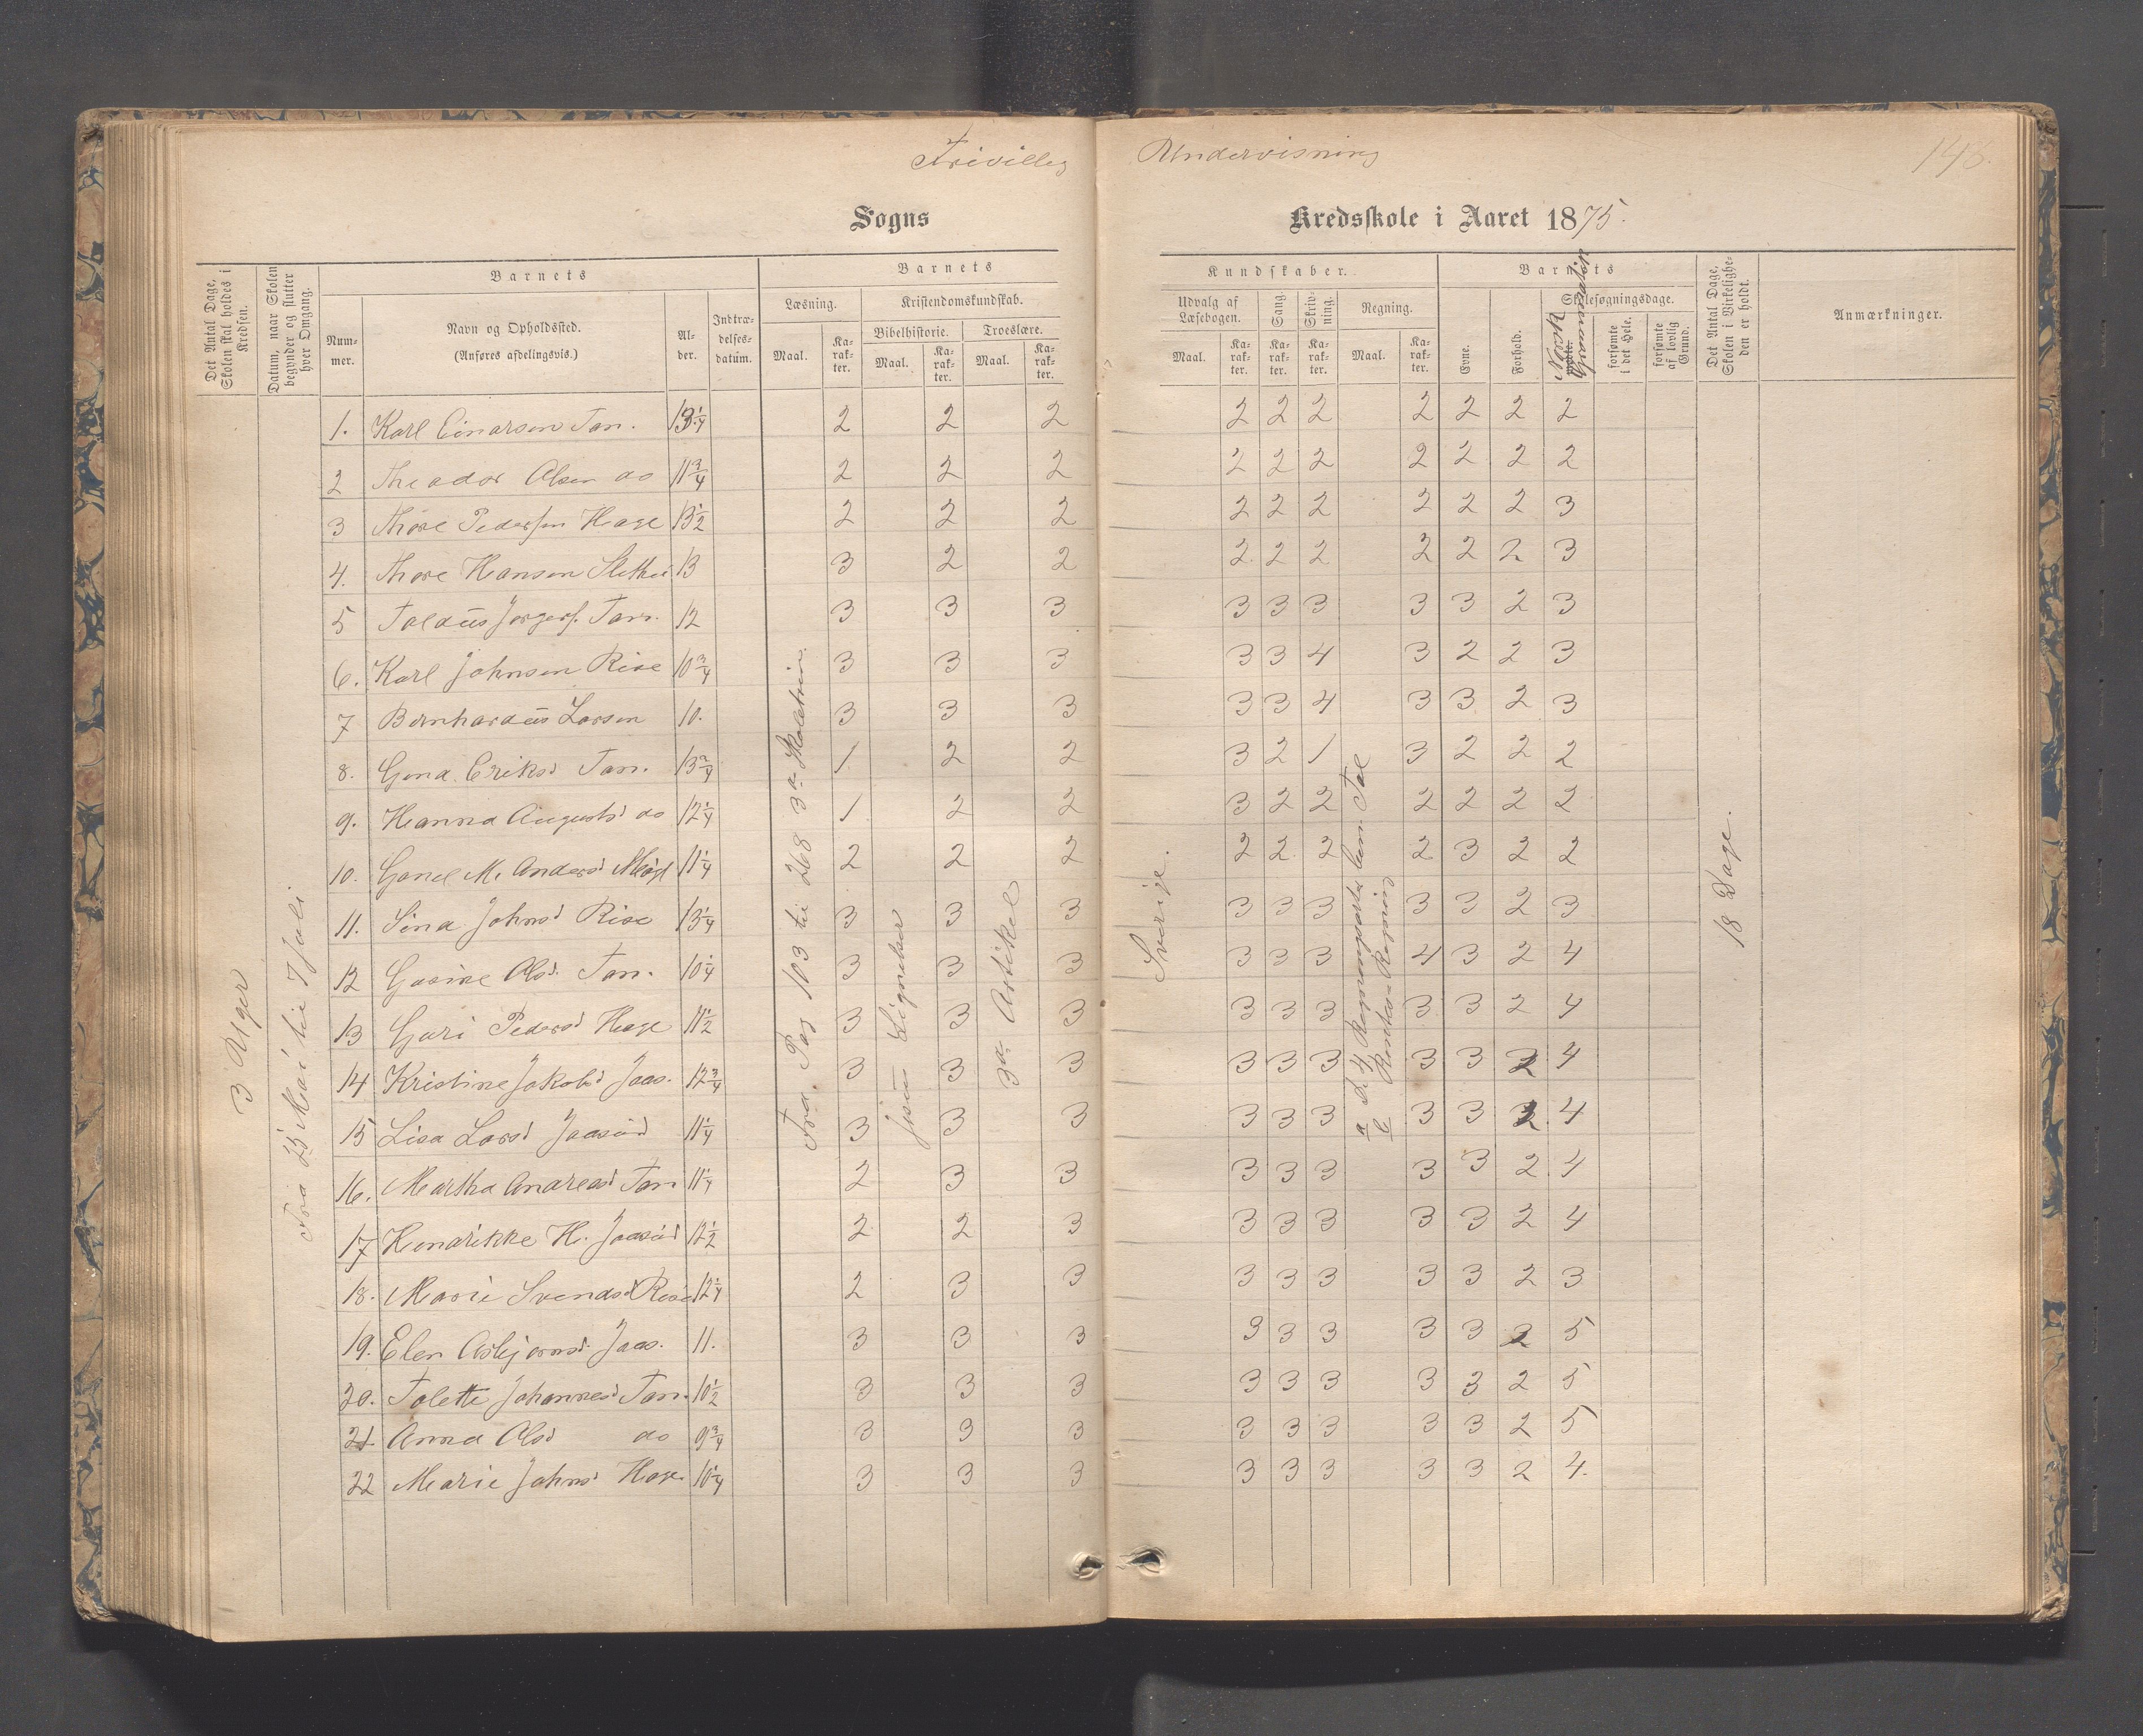 Frivillig Undervisning
148.
Sogns Kredsskole i Aaret 1875.
Det Antal Dage, Skolen skal holdes i Kredsen.
Datum, naar Skolen begynder og slutter hver Omgang.
Barnets
Nummer.
Navn og Opholdssted.
(Anføres afdelingsvis.)
Alder.
Indtrædelsesdatum.
Barnets
Læsning.
Maal.
Karakter.
Kristendomskundskab.
Bibelhistorie.
Maal.
Karakter.
Troeslære.
Maal.
Karakter.
Kundskaber.
Udvalg af Læsebogen.
Maal.
Karakter.
Sang.
Karakter.
Skrivning.
Karakter.
Regning.
Maal.
Karakter.
Barnets
Evne.
Forhold.
Skolesøgningsdage.
Norsk Grammatik
forsømte i det Hele.
forsømte af lovlig Grund.
Det Antal Dage, Skolen i Virkeligheden er holdt.
Anmærkninger.
3 Uger
Fra 25 Mai til 7 Juli
Fra Pag 103 til 268 3a Skoletrin.
Lignelser
3a Artikel
Sverige.
18 Dage.
1. Karl Einarsen Tan. 13¼ 2 2 2 2 2 2 2 2 2 2
2 Theodor Olsen do 11¾ 2 2 2 2 2 2 2 2 2 2
3 Thore Pedersen Hage 13½ 2 2 2 2 2 2 2 2 2 3
4. Thore Hansen 13 3 2 2 2 2 2 2 2 2 3
5 Jorgens. Tan. 12 3 3 3 3 3 3 3 3 2 3
6. Karl Johnsen Rise 10¾ 3 3 3 3 3 4 3 2 2 3
7 Bernhardus Larsen 10. 3 3 3 3 3 4 3 3 2 3
8. Gina Eriksd Tan. 13¾ 1 2 2 3 2 1 3 2 2 2
9. Hanna Augustsd do 12¼ 1 2 2 3 2 2 2 2 2 2
10. M. Andersd 11¼ 2 2 2 2 2 2 2 3 2 2
11. Sina Johnsd Rise 13¼ 3 3 3 3 3 3 3 3 2 3
12 Gusine Olsd. Tan. 10¼ 3 3 3 3 3 3 4 3 2 4
13 Guri Pedersd Hage 11½ 3 3 3 3 3 3 3 3 2 4
14 Kristine Jakobsd Jaas. 12¾ 3 3 3 3 3 3 3 3 2 4
15 Lisa Larsd Jaasund 11¼ 3 3 3 3 3 3 3 3 2 4
16. Martha Andreasd Tan 11¼ 2 3 3 3 3 3 3 3 2 4
17 Hendrikke H. Jaasund 12½ 2 2 3 3 3 3 3 3 2 4
18. Marie Svendsd Rise 12¼ 2 3 3 3 3 3 3 3 2 3
19. Elen Asbjørnsd. Jaas. 11. 3 3 3 3 3 3 3 3 2 5
20. Tolette Johannesd Tan. 10½ 3 3 3 3 3 3 3 3 2 5
21 Anna Olsd do 9¾ 3 3 3 3 3 3 3 3 2 5
22 Marie Johnsd Hage. 10¼ 3 3 3 3 3 3 3 3 2 4.